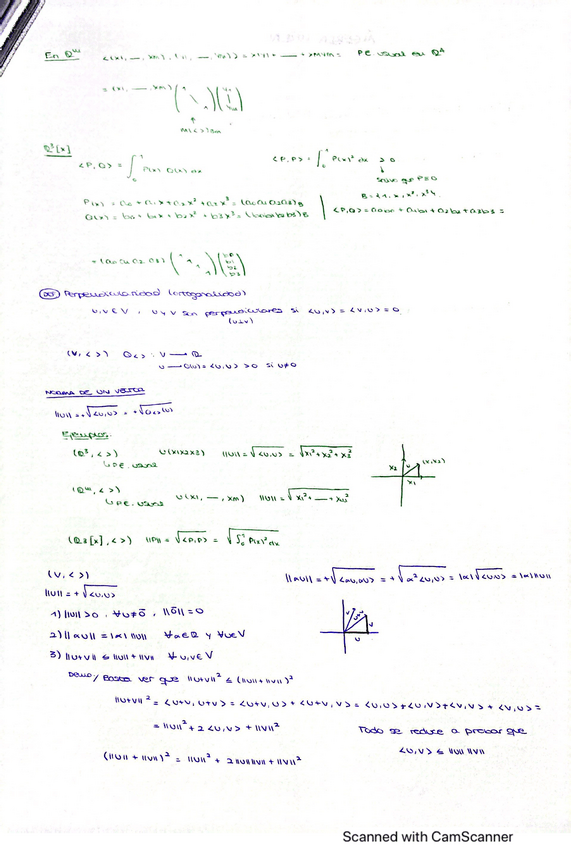 En ℝᵐ <(x1, —, xm), (y1, —, ym)> = x1y1 + — + xmym = P.E. usual en ℝ⁴
= (x1, — xm)
M(<>)Bm
ℝ³[x]
<P,Q> = ∫₀¹ P(x) Q(x) dx <P,P> = ∫₀¹ P(x)² dx ≥ 0
P(x) = a0 + a1x + a2x² + a3x³ = (a0 a1 a2 a3)B B = {1, x, x², x³}
Q(x) = b0 + b1x + b2x² + b3x³ = (b0 b1 b2 b3)B <P,Q> = a0b0 + a1b1 + a2b2 + a3b3 =
= (a0 a1 a2 a3)
Perpendicularidad (ortogonalidad)
u,v ∈ V, u y v son perpendiculares si <u,v> = <v,u> = 0
(u⊥v)
(V, <>) Q<> : V → ℝ
u → Q(u) = <u,u> > 0 si u ≠ 0
NORMA DE UN VECTOR
||u|| = +√<u,u> = +√Q<>(u)
Ejemplos:
(ℝ³, <>) u(x1 x2 x3) ||u|| = √<u,u> = √x1² + x2² + x3²
↳ P.E. usual
x2 u (x1,x2)
x1
(ℝᵐ, <>) u(x1, —, xm) ||u|| = √x1² + — + xm²
↳ P.E. usual
(ℝ3[x], <>) ||P|| = √<P,P> = √∫₀¹ P(x)² dx
(V, <>) ||αu|| = +√<αu,αu> = +√α²<u,u> = |α|√<u,u> = |α| ||u||
||u|| = +√<u,u>
1) ||u|| > 0, ∀u ≠ 0̄, ||0̄|| = 0
2) ||αu|| = |α| ||u|| ∀α ∈ ℝ y ∀u ∈ V
v u+v v
u
3) ||u+v|| ≤ ||u|| + ||v|| ∀ u,v ∈ V
Demo/ Basta ver que ||u+v||² ≤ (||u|| + ||v||)²
||u+v||² = <u+v, u+v> = <u+v, u> + <u+v, v> = <u,u> + <u,v> + <v,v> + <v,u> =
= ||u||² + 2<u,v> + ||v||² Todo se reduce a probar que
<u,v> ≤ ||u|| ||v||
(||u|| + ||v||)² = ||u||² + 2||u|| ||v|| + ||v||²
Scanned with CamScanner